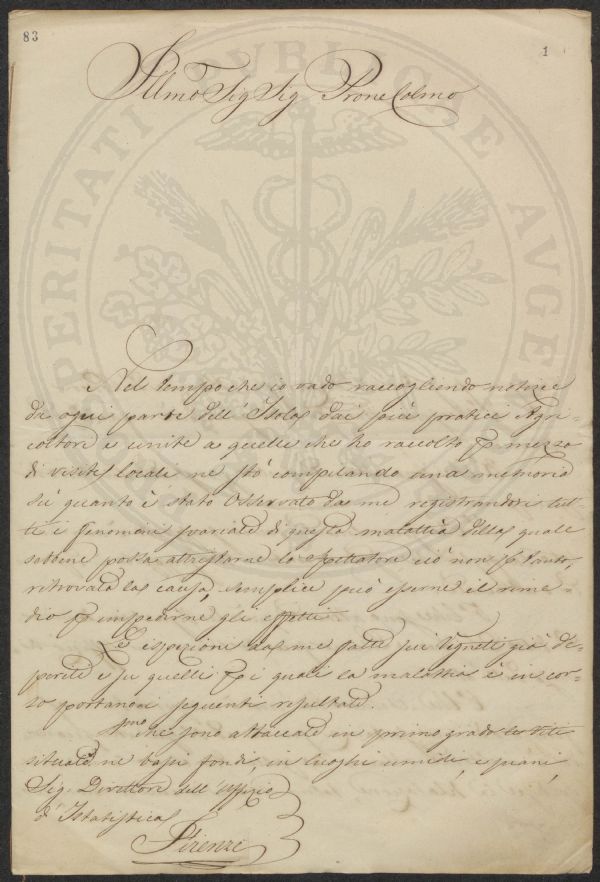 83
1
Illmo Sig Sig Prone Colmo
Nel tempo che io vado raccogliendo notizie
da ogni parte dell' Isola dai più pratici Agri=
coltori e unite a quelle che ho raccolto p mezzo
di visite locali ne stò compilando una memoria
su quanto è stato Osservato da me registrandovi tut-
ti i fenomeni svariati di questa malattia della quale
sebbene possa attristarne lo spettatore ciò non p tanto,
ritrovata la causa, semplice può esserne il rime=
dio p impedirne gli effetti.
Le ispezioni da me fatte sui Vigneti già de=
perite e su quelli p i quali la malattia è in cor=
so portano i seguenti resultati.
pmo che sono attaccate in primo grado le viti
situate ne bassi fondi, in luoghi umidi e piani
Sig. Direttore dell Uffizio
d' Istatistica
Firenze
PERITATI PUBLICAE AUGE